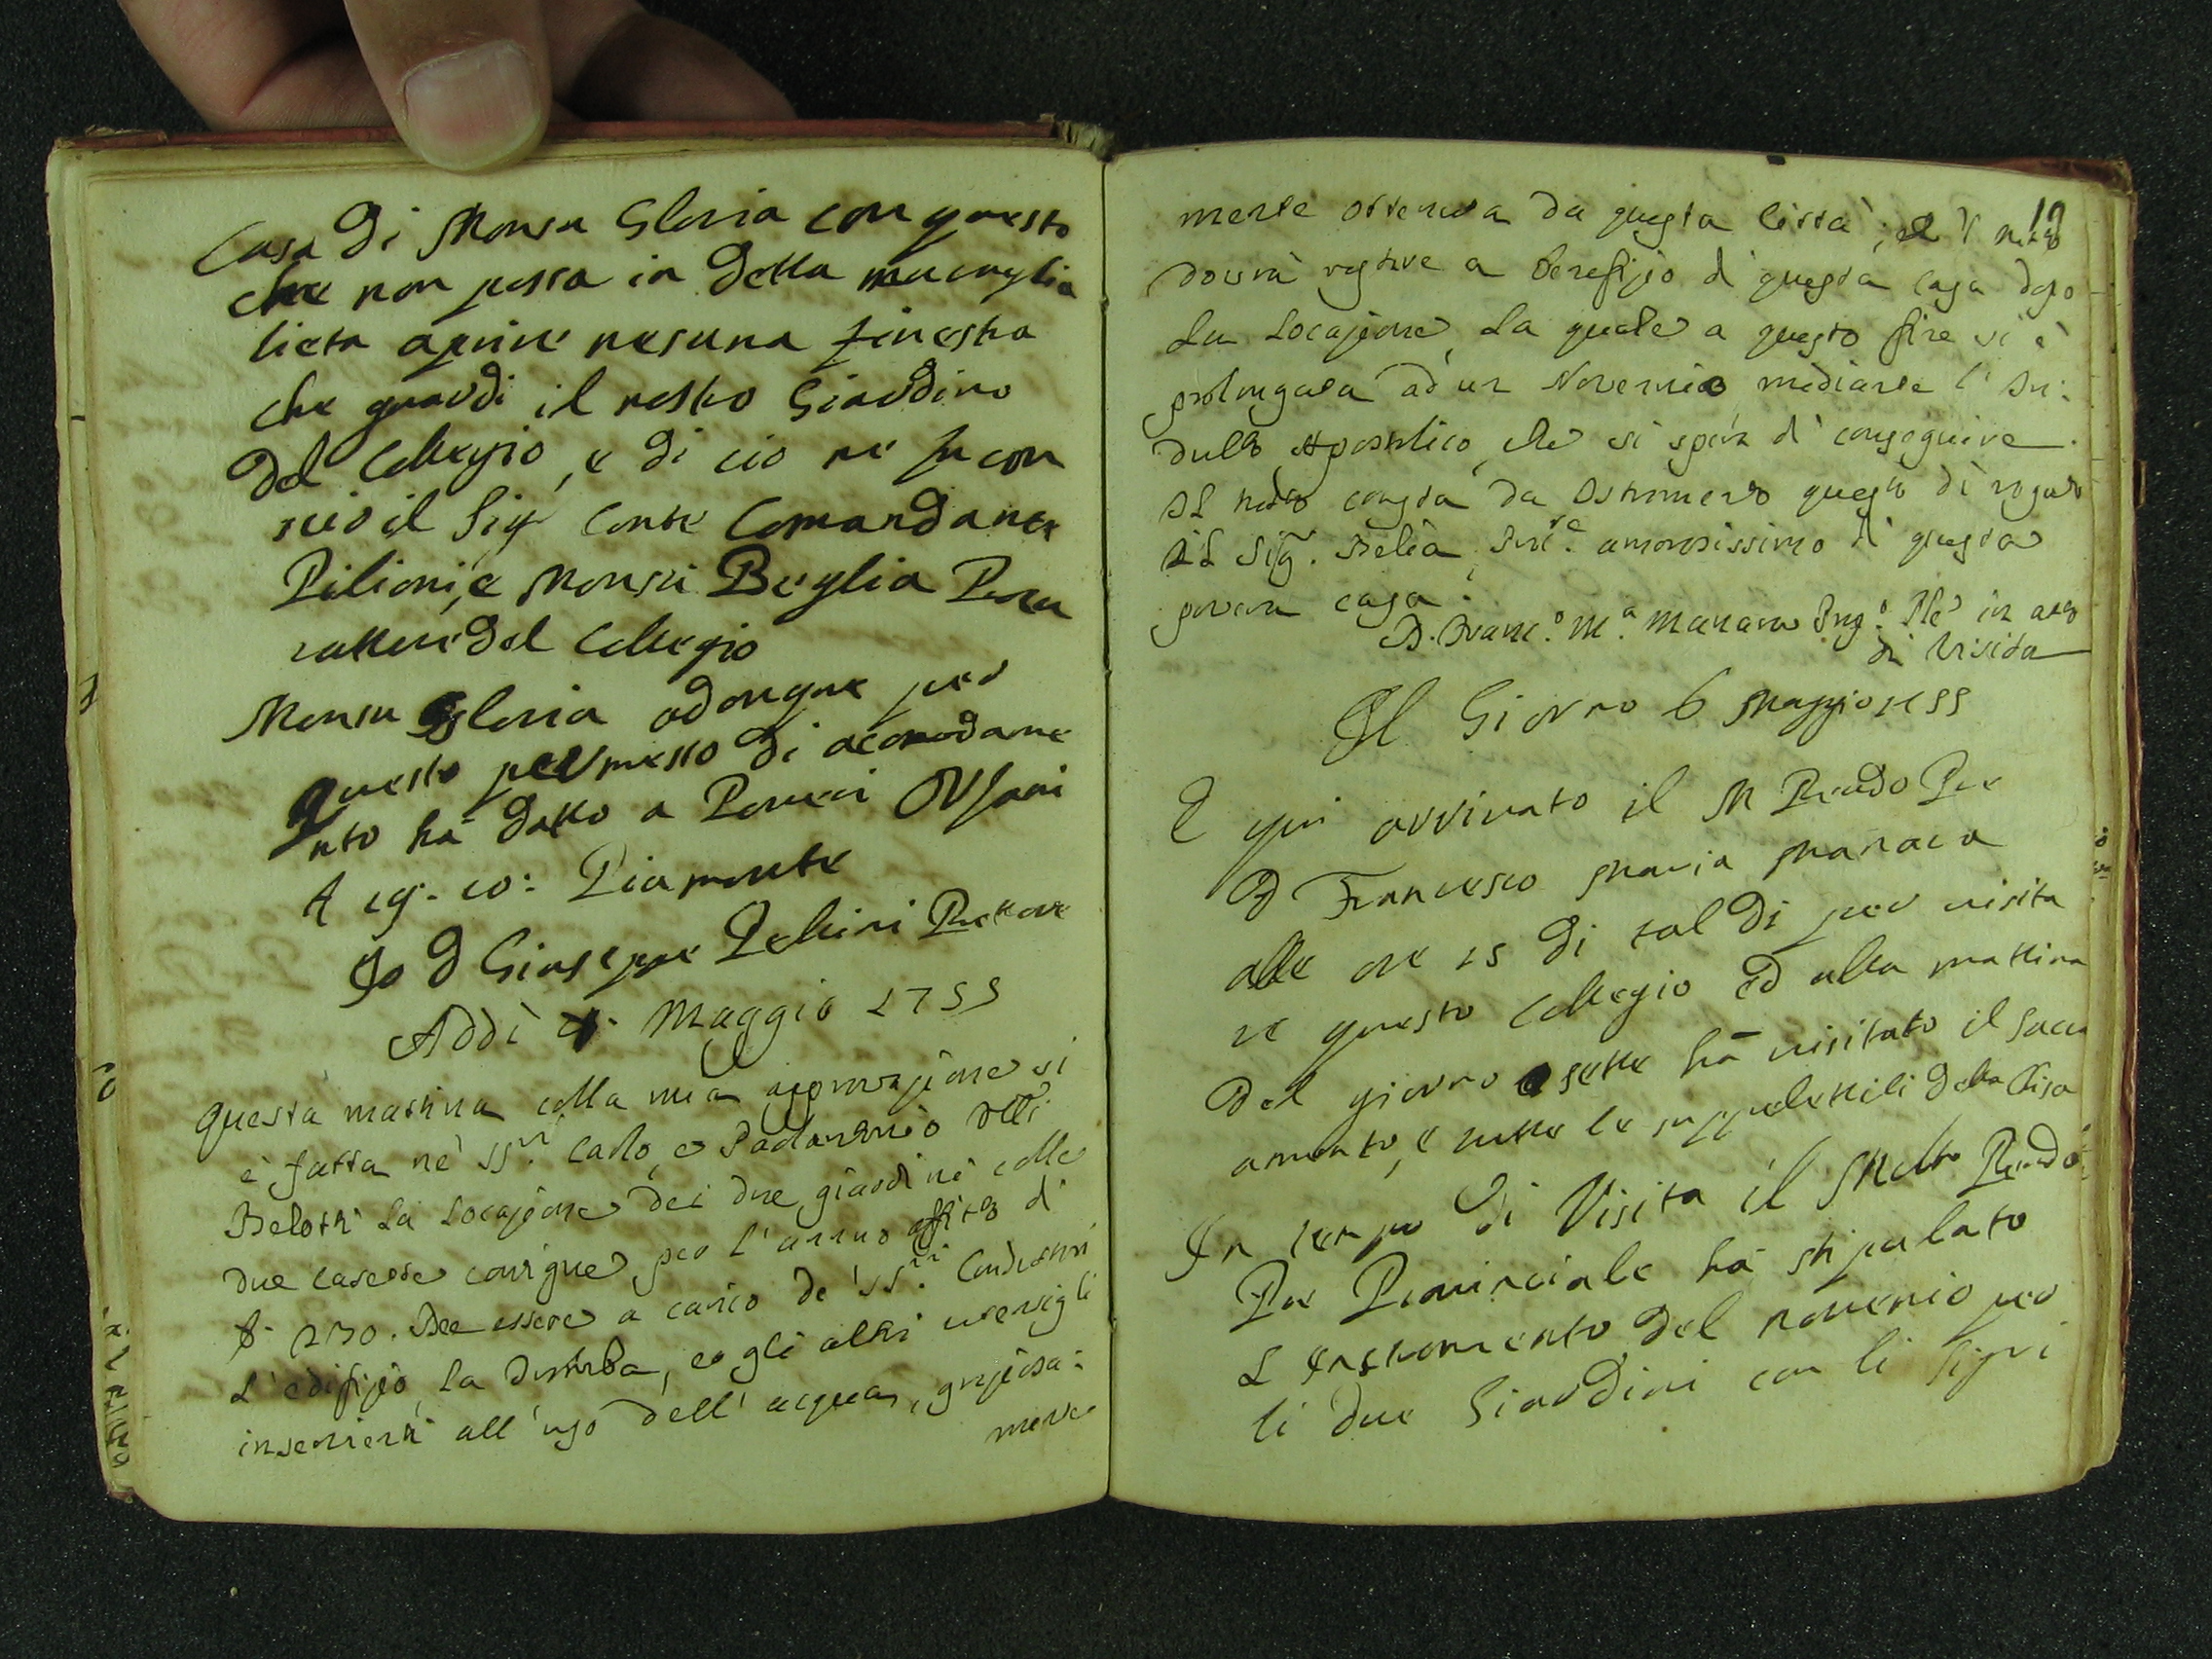 Casa di Monsu Gloria con questo
che non possa in detta muraglia
lieta aprire nesuna finestra
che guardi il nostro Giardino
del Collegio, e di cio ne fu con
scio il Sig.r Conte Comandante
Pilioni, e Monsu Beglia Procu
ratore del Collegio
Monsu Gloria adonque per
questo permesso di acomodame
nto ha datto a Poveri Orfani
Piamonte
Io D Giuseppe Pellini Rettore
Addì Maggio 1755
Questa mattina colla mia approvazione si
è fatta ne' SS.ri Carlo, e Padre
Belotti la Locazione dei due giardini colle
due casette contigue per l'annuo affitto di
230. Dee essere a carico de' SS.ri Conduttori
L'edifizio, la, e gli altri utensigli
inservienti all'uso dell'acqua, grazioa=
mente
19
mente ottenuta da questa Città; e 'l
dovrà restare a benefizio di questa casa dopo
La Locazione, La quale a questo fine si è
prolongata ad un Novennio mediante l' In=
dulto Appostolico, che si spera di conseguire.
Il consta da Istromento questo dì rogato
Il Sig.r Belia amorosissimo di questa
povera casa.
D. Franc.o M.a Manara in atto
di Visita
Il Giorno 6 Maggio 1755
E qui arrivato il M Reudo Pre
D Francesco Maria Manara
alle ore 15 di tal dì per visita
re questo Collegio ed alla mattina
del giorno sette ha visitato il Sacr
amento, e tutte le suppelettili della Chiesa
In tempo di Visita il Molto Reudo
Pre Provinciale ha stipulato
L'Instromento del novenio per
li due Giardini con li Sigri